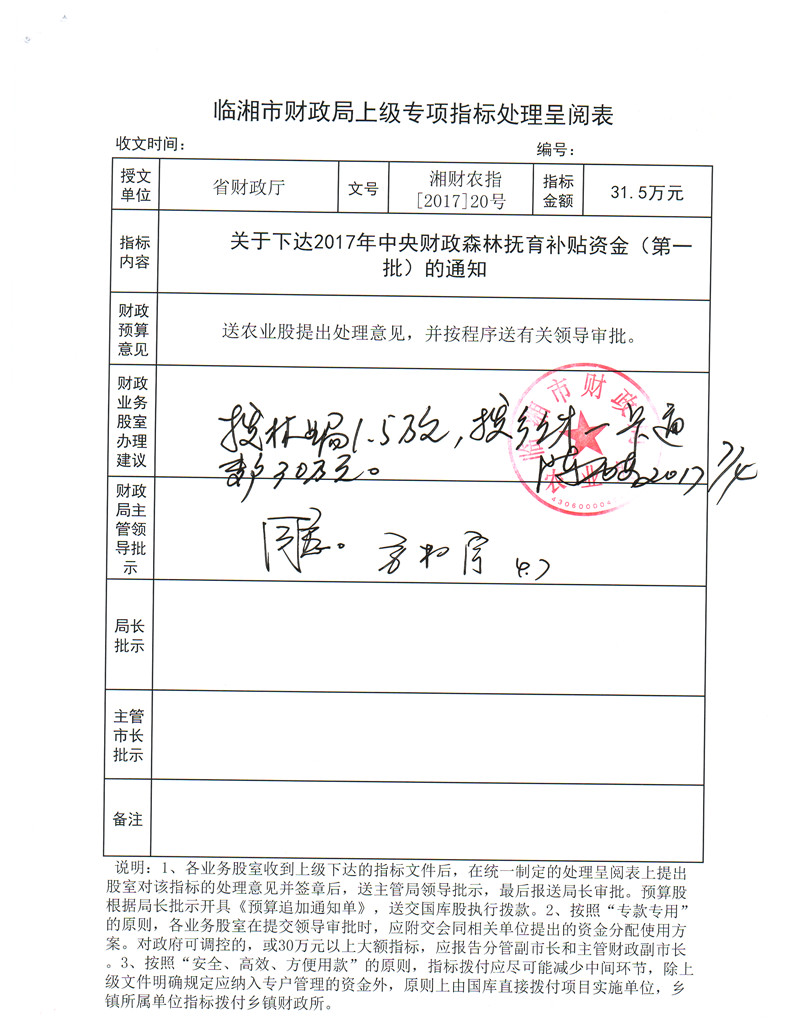 临湘市财政局上级专项指标处理呈阅表
收文时间：
编号：
授文
单位
省财政厅
文号
湘财农指
[2017]20号
指标
金额
31.5万元
指标
内容
关于下达2017年中央财政森林抚育补贴资金（第一
批）的通知
财政
预算
意见
送农业股提出处理意见，并按程序送有关领导审批。
财政
业务
股室
办理
建议
拨林业局1.5万元，拨 一卡通
30万元。
2017
临湘市财政
农业
43060000
财政
局主
管领
导批
示
同意。
局长
批示
主管
市长
批示
备注
说明：1、各业务股室收到上级下达的指标文件后，在统一制定的处理呈阅表上提出
股室对该指标的处理意见并签章后，送主管局领导批示，最后报送局长审批。预算股
根据局长批示开具《预算追加通知单》，送交国库股执行拨款。2、按照“专款专用”
的原则，各业务股室在提交领导审批时，应附交会同相关单位提出的资金分配使用方
案。对政府可调控的，或30万元以上大额指标，应报告分管副市长和主管财政副市长
。3、按照“安全、高效、方便用款”的原则，指标拨付应尽可能减少中间环节，除上
级文件明确规定应纳入专户管理的资金外，原则上由国库直接拨付项目实施单位，乡
镇所属单位指标拨付乡镇财政所。